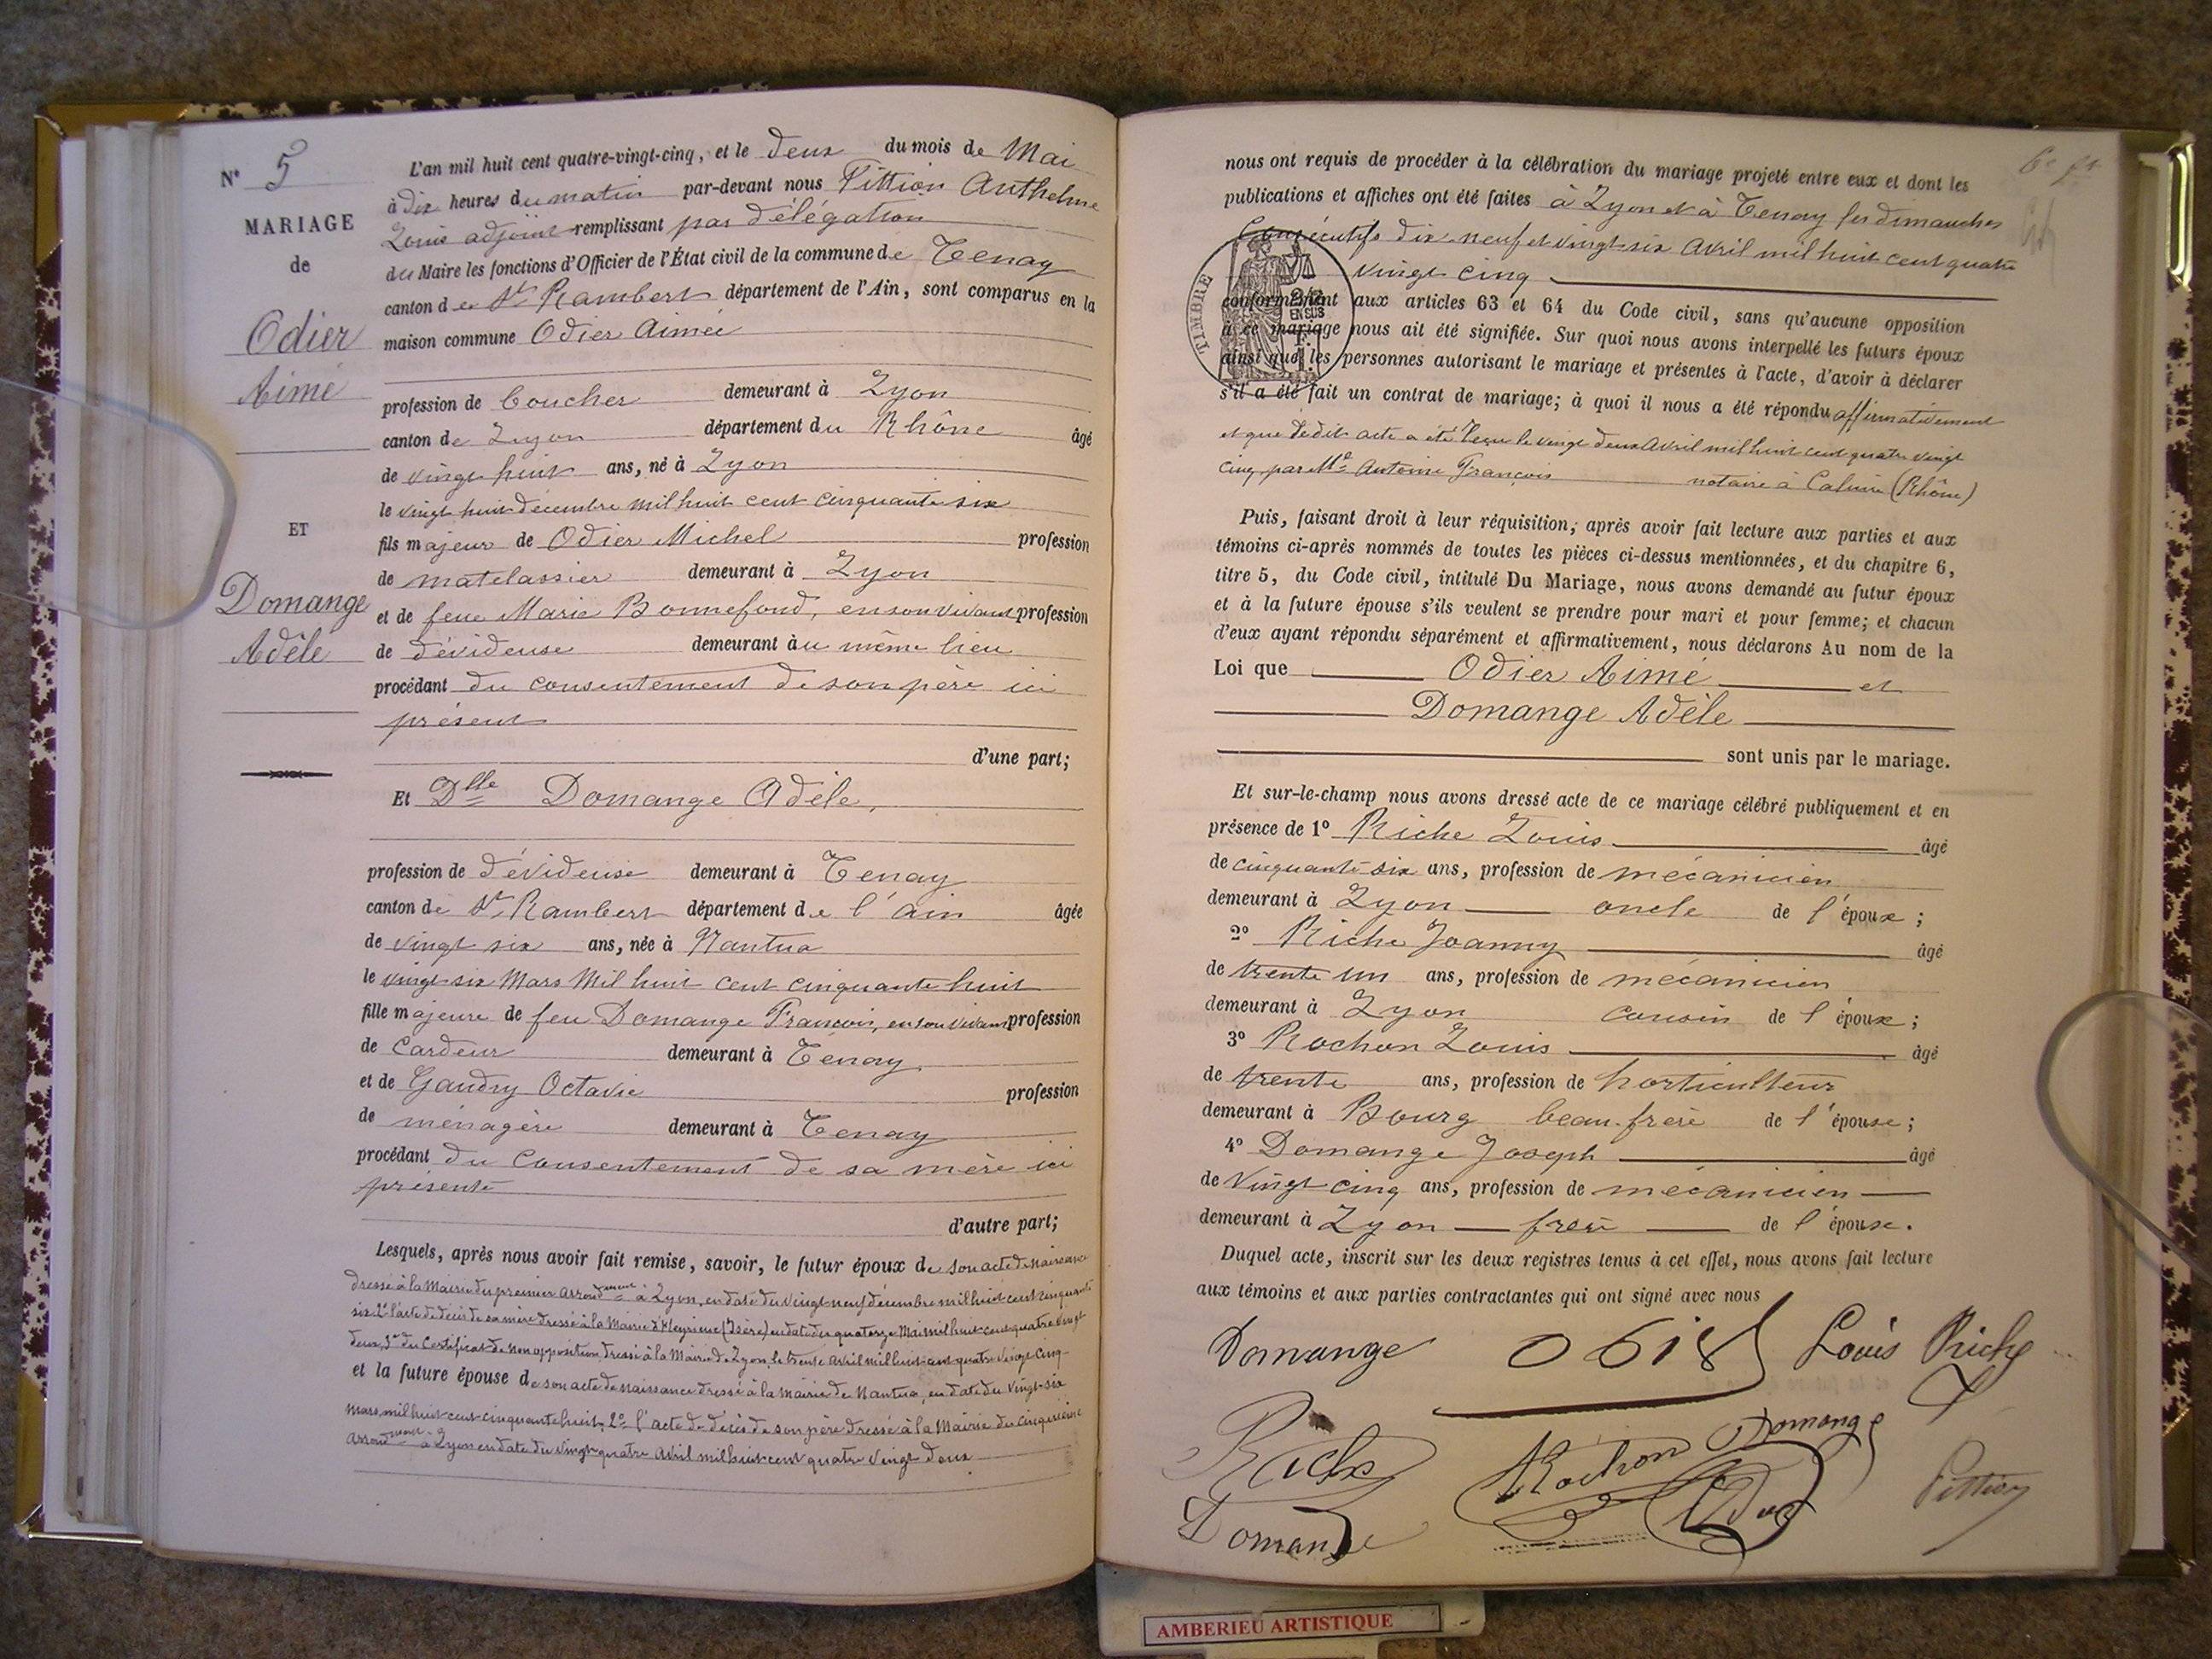 N° 5
MARIAGE
de
Odier
Aimé
ET
Domange
Adèle
L'an mil huit cent quatre-vingt-cinq, et le deux du mois de Mai
à dix heures du matin par-devant nous Pittion Anthelme
Louis adjoint remplissant par délégation
du Maire les fonctions d'Officier de l'État civil de la commune de Tenay
canton de St Rambert département de l'Ain, sont comparus en la
maison commune Odier Aimé
profession de boucher demeurant à Lyon
canton de Lyon département du Rhône âgé
de vingt huit ans, né à Lyon
le vingt huit décembre mil huit cent cinquante six
fils majeur de Odier Michel profession
de matelassier demeurant à Lyon
et de feue Marie Bonnefond, en son vivant profession
de dévideuse demeurant au même lieu
procédant du consentement de son père ici
présent
d'une part;
Et Dlle Domange Adèle,
profession de dévideuse demeurant à Tenay
canton de St Rambert département de l'Ain âgée
de vingt six ans, née à Nantua
le vingt-six Mars Mil huit cent cinquante huit
fille majeure de feu Domange François, en son vivant profession
de Cardeur demeurant à Tenay,
et de Gaudry Octavie profession
de ménagère demeurant à Tenay
procédant du Consentement de sa mère ici
présente
d'autre part;
Lesquels, après nous avoir fait remise, savoir, le futur époux de son acte de naissance
dressé à la Mairie du premier arrondment à Lyon, en date du vingt neuf décembre mil huit cent cinquante
six 2° l'acte de décès de sa mère dressé à la Mairie d'Heyrieux (Isère) en date du quatorze Mai mil huit cent quatre vingt
deux, 3° du Certificat de non opposition dressé à la Mairie de Lyon, le trente avril mil huit cent quatre vingt cinq
et la future épouse de son acte de naissance dressé à la mairie de Nantua, en date du vingt-six
mars, mil huit cent cinquante huit, 2° l'acte de décès de son père dressé à la Mairie du cinquième
arrondment à Lyon en date du vingt quatre avril mil huit cent quatre vingt deux
nous ont requis de procéder à la célébration du mariage projeté entre eux et dont les
publications et affiches ont été faites à Lyon et à Tenay les dimanches
Consécutifs dix-neuf et vingt-six Avril mil huit cent quatre
vingt cinq
TIMBRE
EN SUS
conformément aux articles 63 et 64 du Code civil, sans qu'aucune opposition
à ce mariage nous ait été signifiée. Sur quoi nous avons interpellé les futurs époux
ainsi que les personnes autorisant le mariage et présentes à l'acte, d'avoir à déclarer
s'il a été fait un contrat de mariage; à quoi il nous a été répondu affirmativement
et que ledit acte a été reçu le vingt deux Avril mil huit cent quatre vingt
cinq, par Me Antoine François notaire à Caluire (Rhône)
Puis, faisant droit à leur réquisition, après avoir fait lecture aux parties et aux
témoins ci-après nommés de toutes les pièces ci-dessus mentionnées, et du chapitre 6,
titre 5, du Code civil, intitulé Du Mariage, nous avons demandé au futur époux
et à la future épouse s'ils veulent se prendre pour mari et pour femme; et chacun
d'eux ayant répondu séparément et affirmativement, nous déclarons Au nom de la
Loi que Odier Aimé et
Domange Adèle
sont unis par le mariage.
Et sur-le-champ nous avons dressé acte de ce mariage célébré publiquement et en
présence de 1° Riche Louis âgé
de cinquante-six ans, profession de mécanicien
demeurant à Lyon oncle de l'époux;
2° Riche Joanny âgé
de trente un ans, profession de mécanicien
demeurant à Lyon cousin de l'époux;
3° Rochon Louis âgé
de trente ans, profession de horticulteur
demeurant à Bourg beau-frère de l'épouse;
4° Domange Joseph âgé
de vingt-cinq ans, profession de mécanicien
demeurant à Lyon frère de l'épouse.
Duquel acte, inscrit sur les deux registres tenus à cet effet, nous avons fait lecture
aux témoins et aux parties contractantes qui ont signé avec nous
Domange Odier Louis Riche
Riche Rochon Domange
Domange Pittion
AMBERIEU ARTISTIQUE